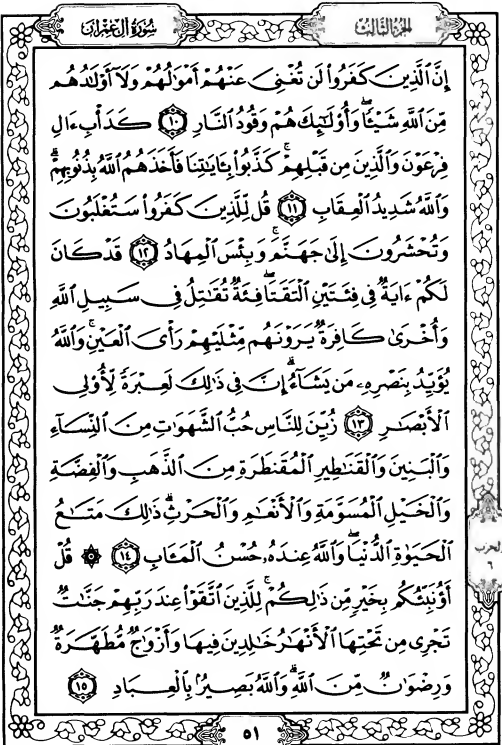 سُورَةُ آلِ عِمْرَان
الجُزءُ الثَّالِث
إِنَّ ٱلَّذِينَ كَفَرُوا۟ لَن تُغْنِىَ عَنْهُمْ أَمْوَٰلُهُمْ وَلَآ أَوْلَٰدُهُم
مِّنَ ٱللَّهِ شَيْـًٔا ۖ وَأُو۟لَٰٓئِكَ هُمْ وَقُودُ ٱلنَّارِ ١٠ كَدَأْبِ ءَالِ
فِرْعَوْنَ وَٱلَّذِينَ مِن قَبْلِهِمْ ۚ كَذَّبُوا۟ بِـَٔايَٰتِنَا فَأَخَذَهُمُ ٱللَّهُ بِذُنُوبِهِمْ ۗ
وَٱللَّهُ شَدِيدُ ٱلْعِقَابِ ١١ قُل لِّلَّذِينَ كَفَرُوا۟ سَتُغْلَبُونَ
وَتُحْشَرُونَ إِلَىٰ جَهَنَّمَ ۚ وَبِئْسَ ٱلْمِهَادُ ١٢ قَدْ كَانَ
لَكُمْ ءَايَةٌ فِى فِئَتَيْنِ ٱلْتَقَتَا ۖ فِئَةٌ تُقَٰتِلُ فِى سَبِيلِ ٱللَّهِ
وَأُخْرَىٰ كَافِرَةٌ يَرَوْنَهُم مِّثْلَيْهِمْ رَأْىَ ٱلْعَيْنِ ۚ وَٱللَّهُ
يُؤَيِّدُ بِنَصْرِهِۦ مَن يَشَآءُ ۗ إِنَّ فِى ذَٰلِكَ لَعِبْرَةً لِّأُو۟لِى
ٱلْأَبْصَٰرِ ١٣ زُيِّنَ لِلنَّاسِ حُبُّ ٱلشَّهَوَٰتِ مِنَ ٱلنِّسَآءِ
وَٱلْبَنِينَ وَٱلْقَنَٰطِيرِ ٱلْمُقَنطَرَةِ مِنَ ٱلذَّهَبِ وَٱلْفِضَّةِ
وَٱلْخَيْلِ ٱلْمُسَوَّمَةِ وَٱلْأَنْعَٰمِ وَٱلْحَرْثِ ۗ ذَٰلِكَ مَتَٰعُ
ٱلْحَيَوٰةِ ٱلدُّنْيَا ۖ وَٱللَّهُ عِندَهُۥ حُسْنُ ٱلْمَـَٔابِ ١٤ ۞ قُلْ
أَؤُنَبِّئُكُم بِخَيْرٍ مِّن ذَٰلِكُمْ ۚ لِلَّذِينَ ٱتَّقَوْا۟ عِندَ رَبِّهِمْ جَنَّٰتٌ
تَجْرِى مِن تَحْتِهَا ٱلْأَنْهَٰرُ خَٰلِدِينَ فِيهَا وَأَزْوَٰجٌ مُّطَهَّرَةٌ
وَرِضْوَٰنٌ مِّنَ ٱللَّهِ ۗ وَٱللَّهُ بَصِيرٌۢ بِٱلْعِبَادِ ١٥
الحزب
٦
٥١